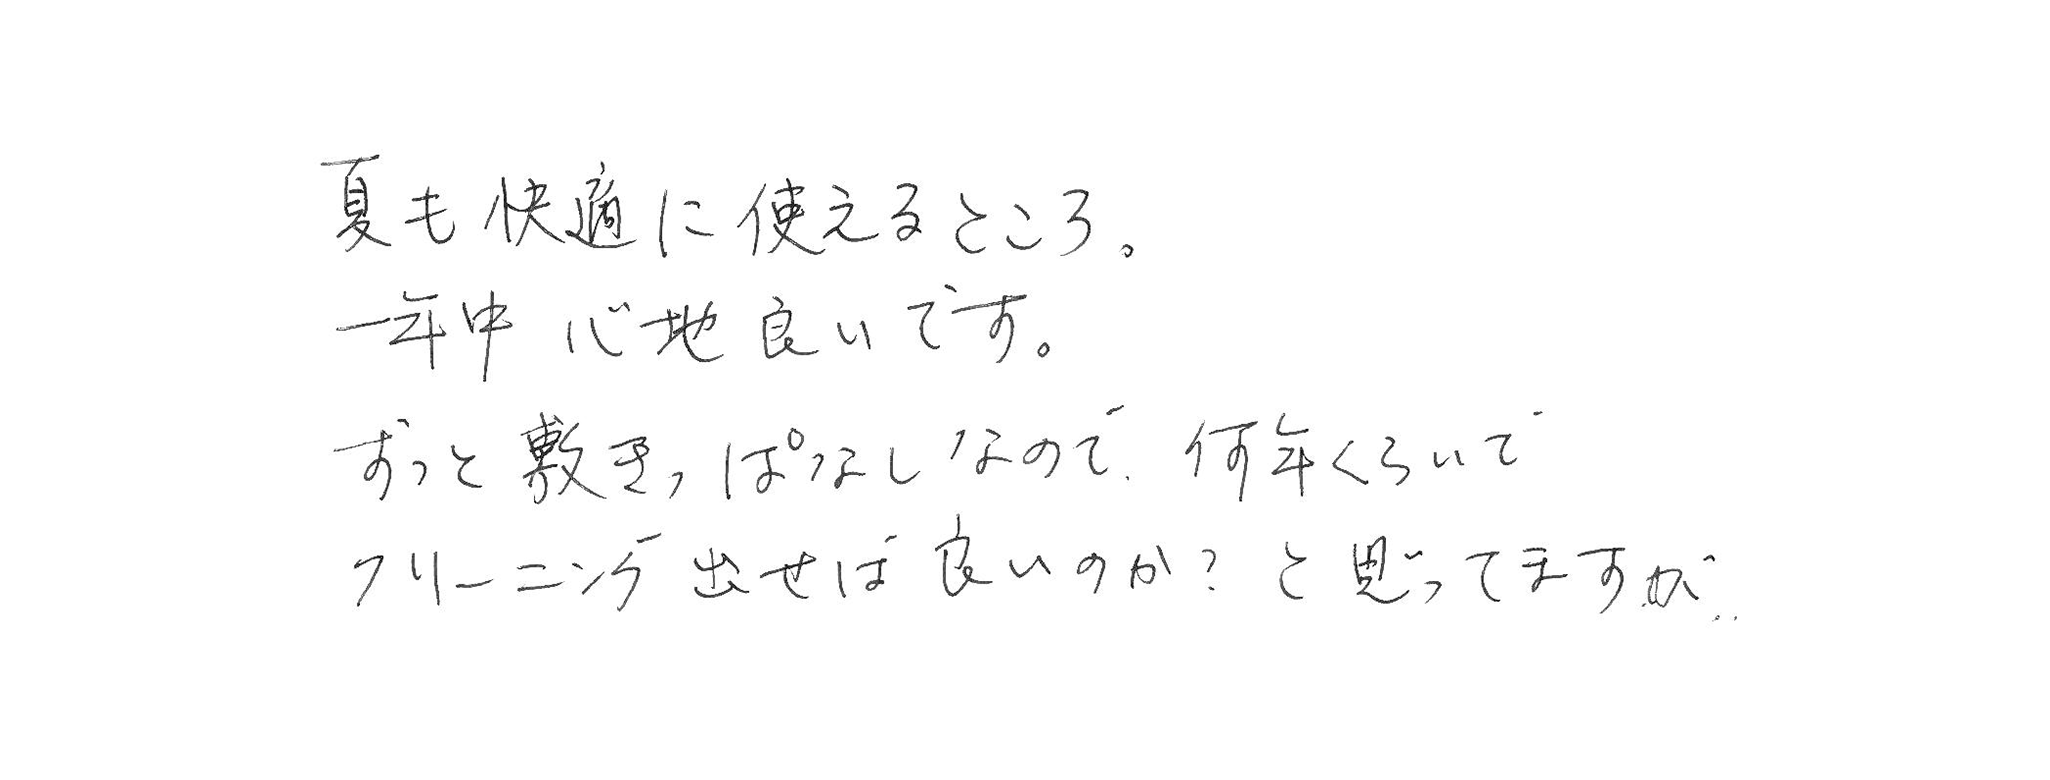 夏も快適に使えるところ。
一年中 心地良いです。
ずっと敷きっぱなしなので、何年くらいで
クリーニング出せば良いのか？と思ってますが…